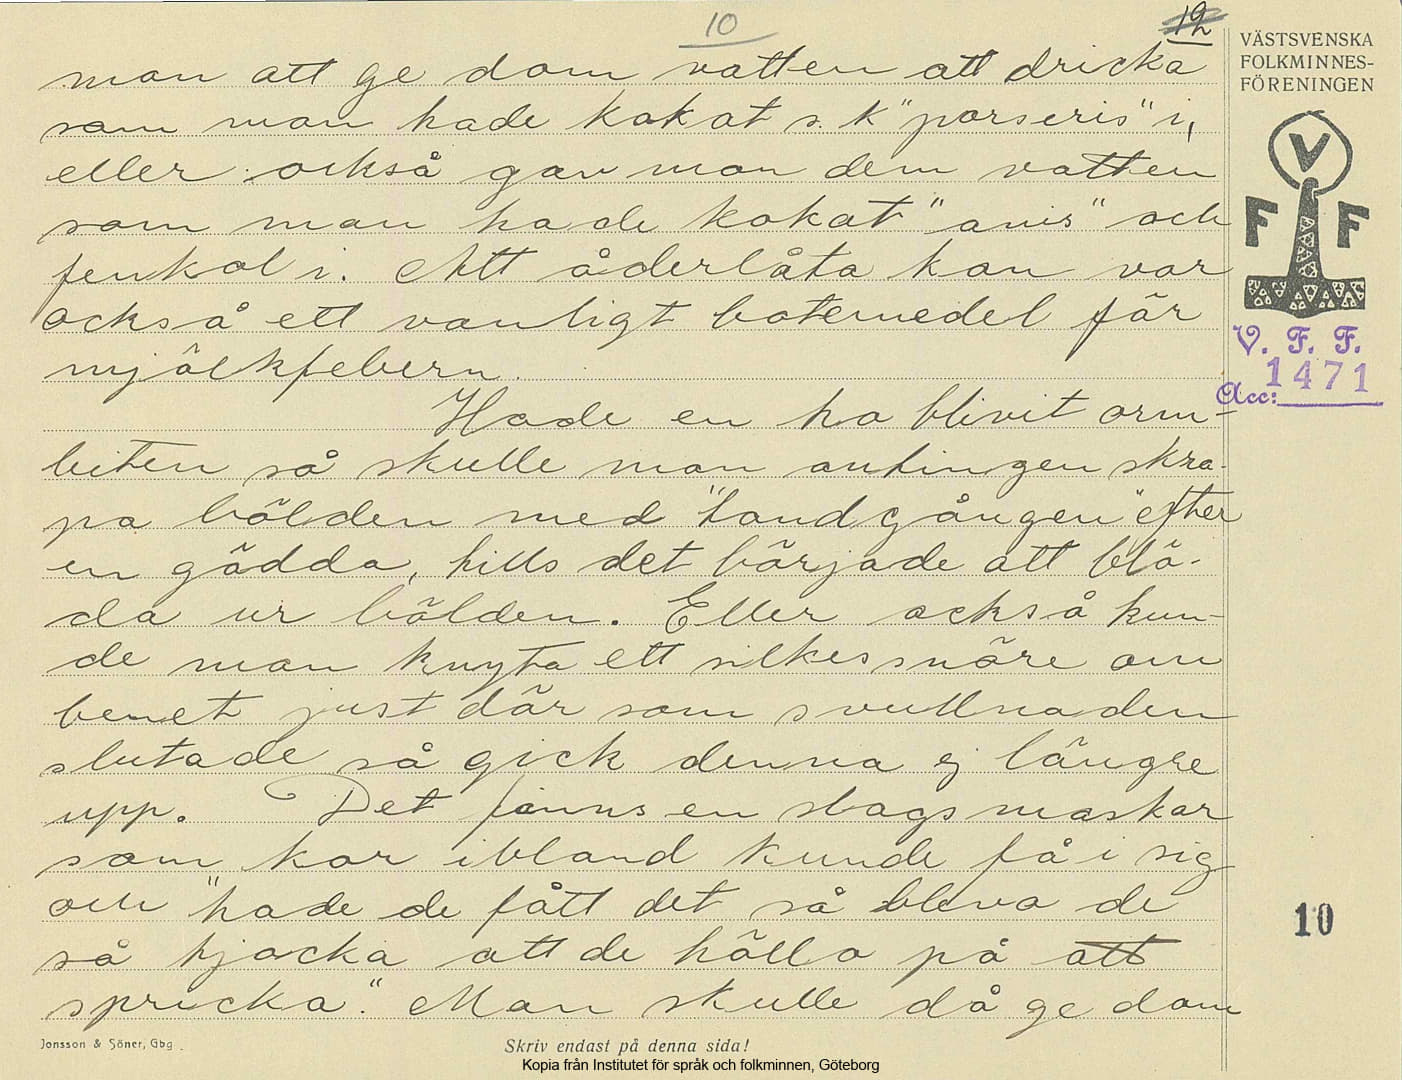 10
12
man att ge dom vatten att dricka
som man hade kokat s. k "porseris" i,
eller också gav man dem vatten
som man hade kokat "anis" och
fenkol i. Att åderlåta kon var
också ett vanligt botemedel för
mjölkfebern.
Hade en ko blivit orm-
biten så skulle man antingen skra-
pa bölden med "tandgången" efter
en gädda, tills det började att blö-
da ur bölden. Eller också kun-
de man knyta ett silkessnöre om
benet just där som svullnaden
slutade så gick denna ej längre
upp. Det finns en slags maskar
som kor ibland kunde få i sig
och "hade de fått det så bleva de
så tjocka att de hålla på att
spricka." Man skulle då ge dom
VÄSTSVENSKA
FOLKMINNES-
FÖRENINGEN
V
F F
V. F. F.
Acc: 1471
10
Jonsson & Söner, Gbg.
Skriv endast på denna sida!
Kopia från Institutet för språk och folkminnen, Göteborg